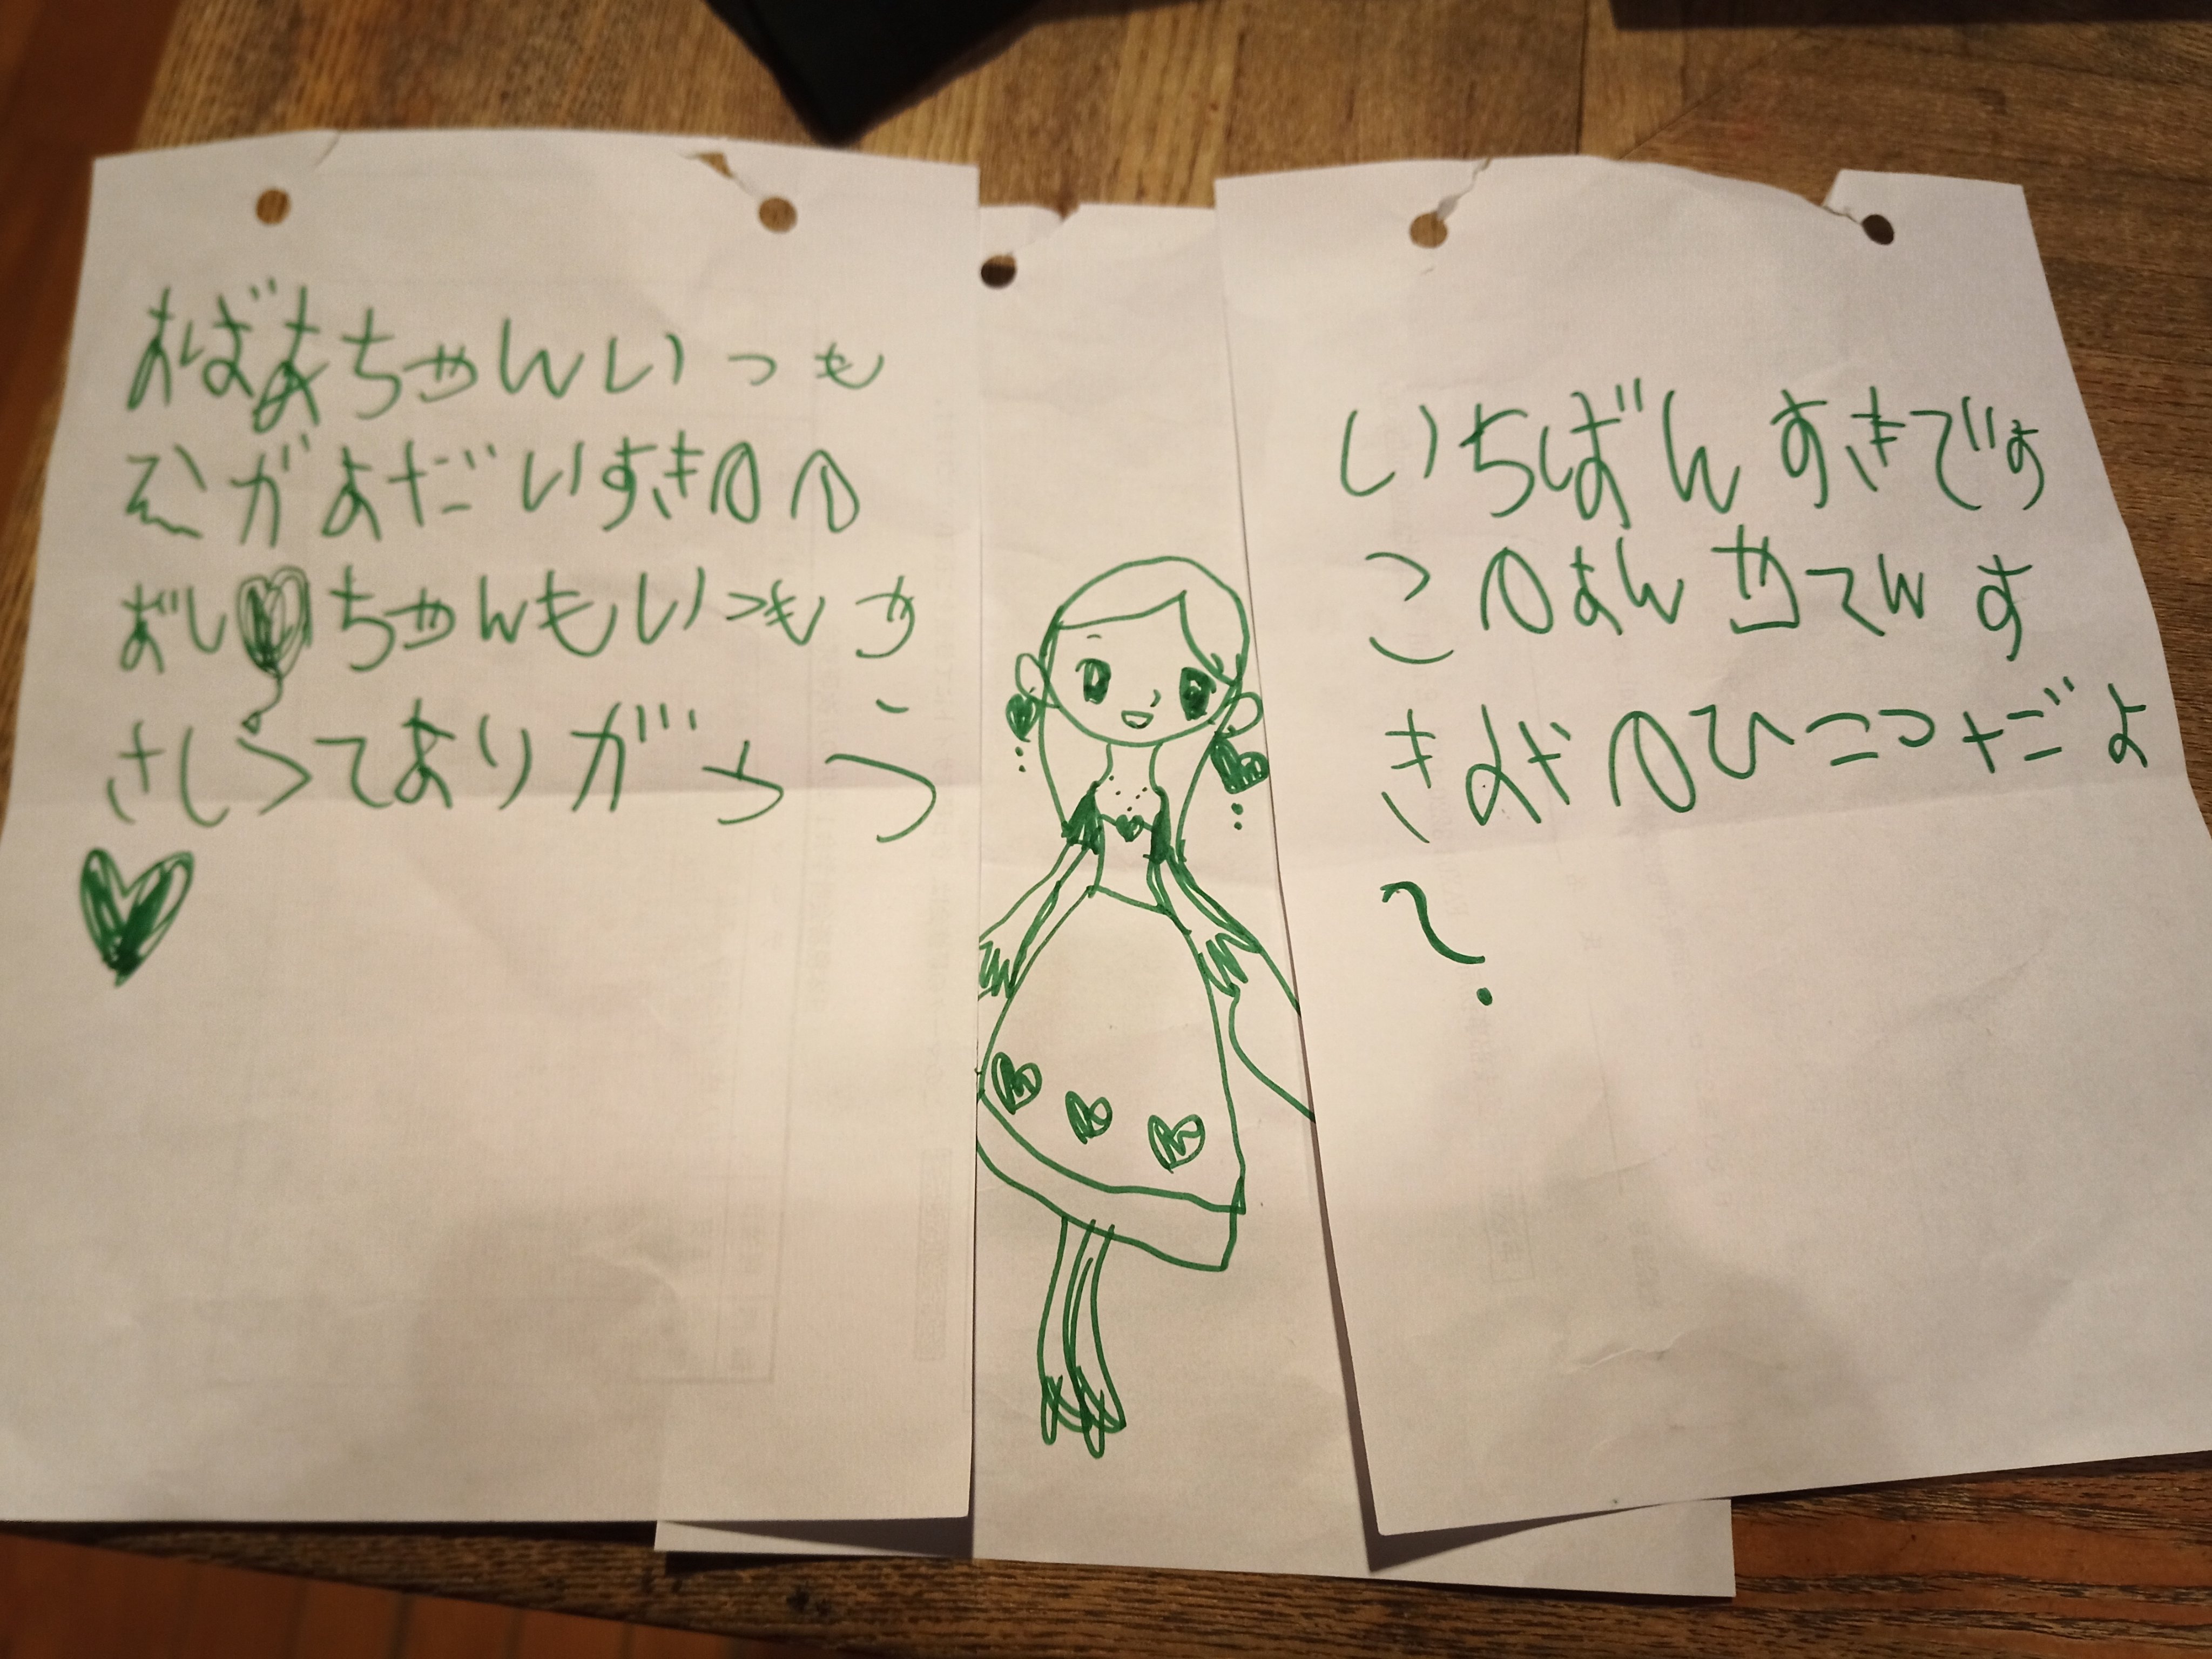 おばあちゃんいつも
えがおだいすきのの
おし ちゃんもいつもや
さしくてありがとう
いちばんすきです
このあんやてんす
きよかのひこつただよ
?